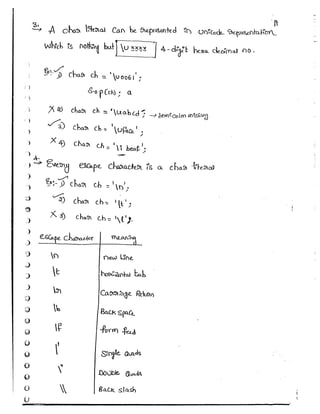 3. A char literal can be represented in Unicode representation
which is nothing but '\uxxxx' 4-digit hexa decimal no.
Ex:- ✓ 1) char ch = '\u0061';
S.o.p(ch); a
X 2) char ch = '\uabcd; → semicolon missing
✓ 3) char ch = '\uface';
X 4) char ch = '\i beat';
4. → Every escape character is a char literal
Ex:- ✓ 1) char ch = '\n';
✓ 2) char ch = '\t';
X 3) char ch =
escape character meaning
\n new line
\t horizontal tab
\r Carriage Return
\b Back space
\f form feed
\' Single Quote
\" Double Quote
\\ Back slash